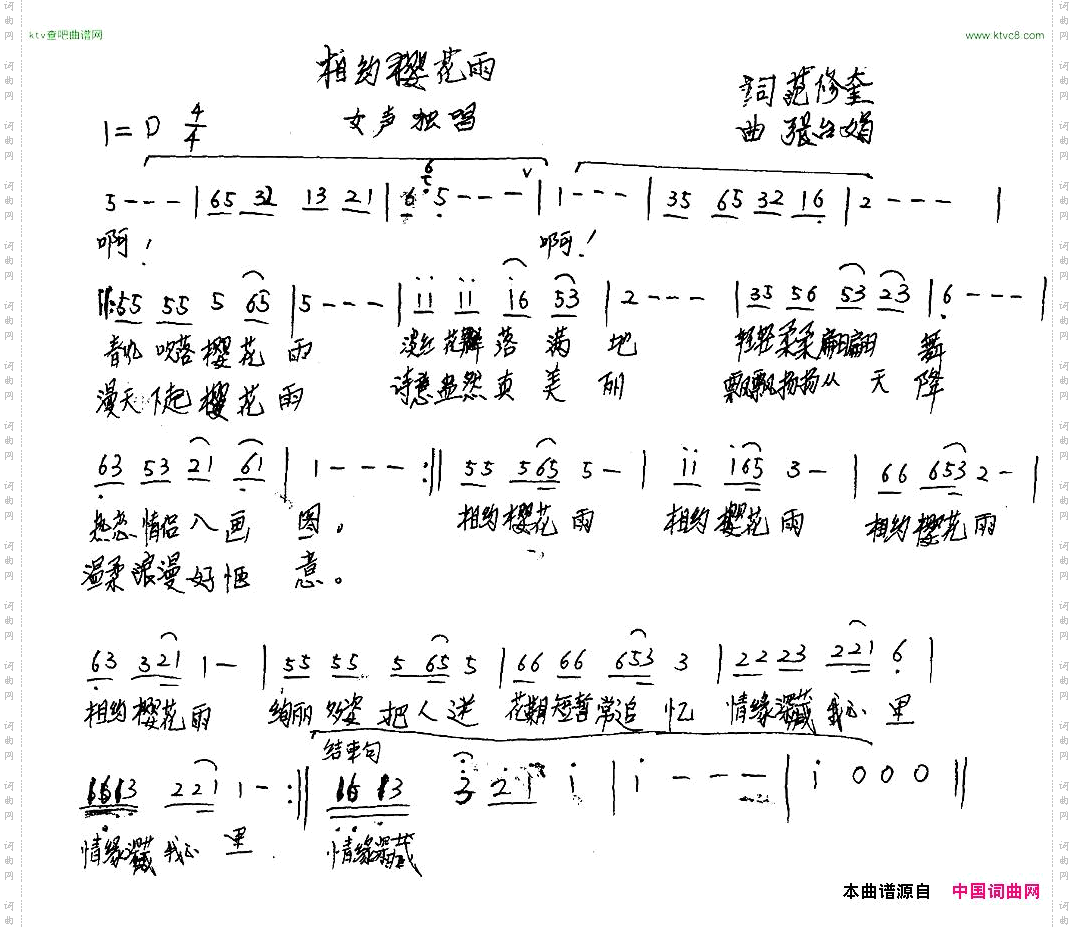 ktv查吧曲谱网 www.ktvc8.com
相约樱花雨
女声独唱
词 范修奎
曲 张台娟
1=D 4/4
5 - - - | 65 32 13 21 | 6 5 - - - | 1 - - - | 35 65 32 16 | 2 - - - |
啊! 啊!
‖: 55 55 5 65 | 5 - - - | 11 11 16 53 | 2 - - - | 35 56 53 23 | 6 - - - |
吹落樱花雨 淡红花瓣落满地 轻轻柔柔翩翩舞
漫天下起樱花雨 诗意盎然真美丽 飘飘扬扬从天降
63 53 21 61 | 1 - - - :‖ 55 565 5 - | 11 165 3 - | 66 653 2 - |
热恋情侣入画图。 相约樱花雨 相约樱花雨 相约樱花雨
温柔浪漫好惬意。
63 321 1 - | 55 55 5 65 5 | 66 66 653 3 | 22 23 221 6 |
相约樱花雨 绚丽多姿把人迷 花期短暂常追忆 情缘深藏我心里
结束句
1613 221 1 - :‖ 16 13 3 21 1 | 1 - - - | 1 0 0 0 ‖
情缘深藏我心里 情缘深藏
本曲谱源自 中国词曲网